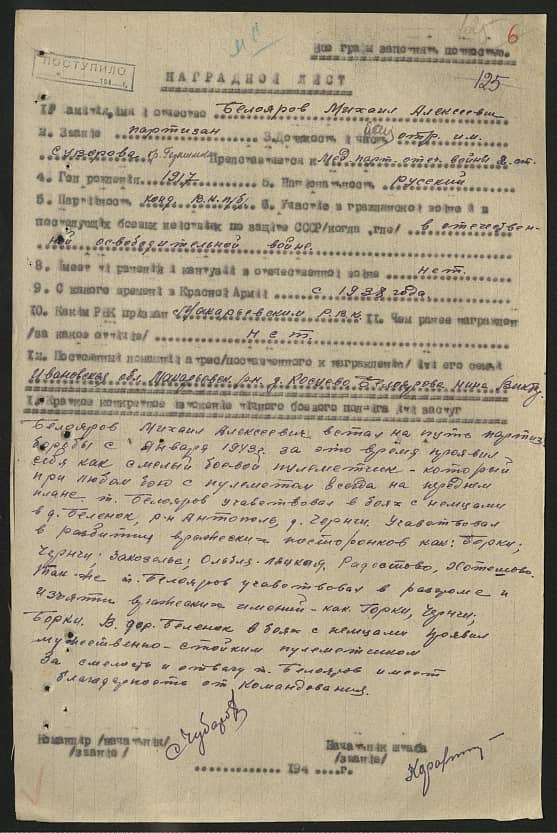 6
Все графы заполнять полностью.
ПОСТУПИЛО
194 г.
НАГРАДНОЙ ЛИСТ
125
1. Фамилия, имя и отчество Белояров Михаил Алексеевич
2. Звание партизан 3. Должность и часть отр. им.
Суворова бр. Представляется к Мед. парт. отеч. войны 2 ст.
4. Год рождения 1917 5. Национальность Русский
5. Партийность канд. В.К.П/б/ 6. Участие в гражданской войне и в
последующих боевых действиях по защите СССР/когда, где/ в отечествен-
ной освободительной войне.
8. Имеет ли ранения и контузии в отечественной войне нет.
9. С какого времени в Красной Армии с 1938 года
10. Каким РВК призван Макарьевским Р.В.К. 11. Чем ранее награжден
/за какие отличия/ Нет.
12. Постоянный домашний адрес/представленного к награждению/ или его семьи
Ивановская обл. Макарьевск. р-н. д. Нина
1. Краткое конкретное изложение личного боевого подвига или заслуг
Белояров Михаил Алексеевич встал на путь партиз.
борьбы с января 1943г. за это время проявил
себя как смелый боевой пулеметчик - который
при любом бою с пулеметом всегда на переднем
плане т. Белояров учавствовал в боях с немцами
в д. Беленок, р-н Антополь, д. Чернчи. Учавствовал
в разбитии вражеских гостороиков как: Борки;
Чернчи; Закозелье; Радостово, Хотешово.
Так-же т. Белояров учавствовал в разгроме и
изъятии вражеских имений - как Горки, Чернчи,
Борки. В дер. Беленок в боях с немцами проявил
мужественно-стойким пулеметчиком
За смелость и отвагу т. Белояров имеет
благодарность от командования.
Командир /начальник/
/звание/
Чубаров
Начальник штаба
/звание/
194 г.